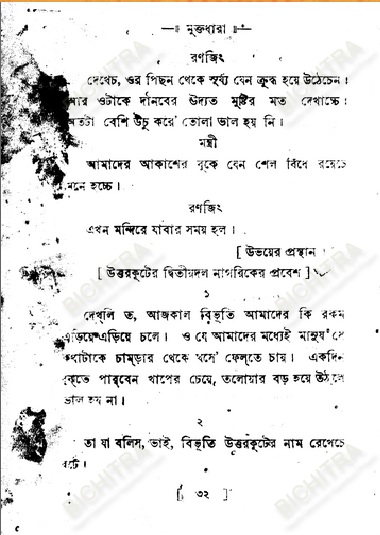 মুক্তধারা
রণজিৎ
দেখেচ, ওর পিছন থেকে সূর্য্য যেন ক্রুদ্ধ হয়ে উঠেচেন।
আর ওটাকে দানবের উদ্যত মুষ্টির মত দেখাচ্চে।
অতটা বেশি উঁচু করে' তোলা ভাল হয় নি॥
মন্ত্রী
আমাদের আকাশের বুকে যেন শেল বিঁধে রয়েচে
মনে হচ্চে।
রণজিৎ
এখন মন্দিরে যাবার সময় হল।
[ উভয়ের প্রস্থান
[ উত্তরকূটের দ্বিতীয়দল নাগরিকের প্রবেশ ]
১
দেখ্‌লি ত, আজকাল বিভূতি আমাদের কি রকম
এড়িয়ে এড়িয়ে চলে। ও যে আমাদের মধ্যেই মানুষ
কথাটাকে চামড়ার থেকে ঘসে' ফেল্‌তে চায়। একদিন
পারবেন খাপের চেয়ে, তলোয়ার বড় হয়ে উঠ্‌লে
ভাল হয় না।
২
তা যা বলিস, ভাই, বিভূতি উত্তরকূটের নাম রেখেচে
বটে।
[ ৩২ ]
BICHITRA